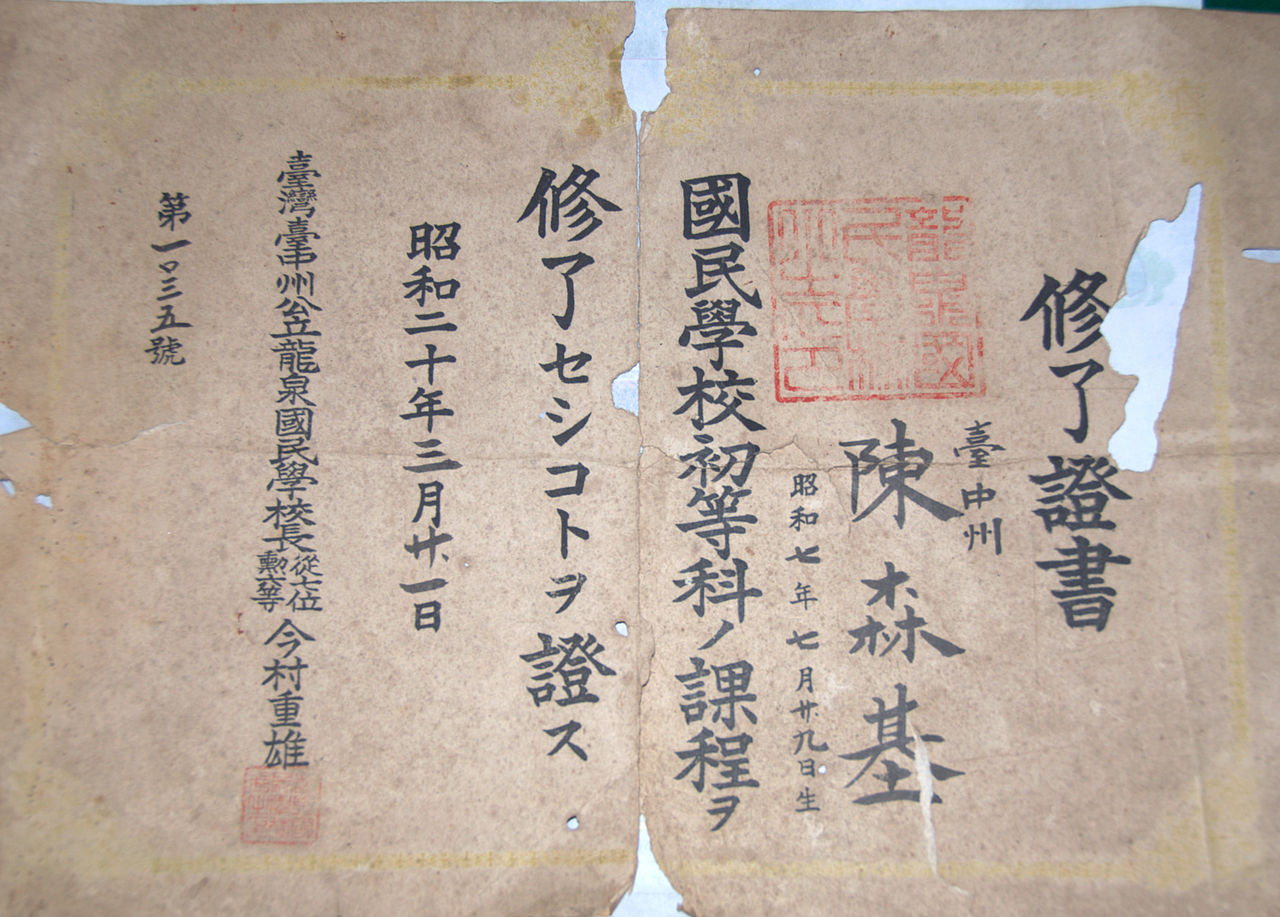 修了證書
臺中州
陳森基
昭和七年七月廿九日生
國民學校初等科ノ課程ヲ
修了セシコトヲ證ス
昭和二十年三月廿一日
臺灣臺中州公立龍泉國民學校長從七位勳六等今村重雄
第一〇三五號